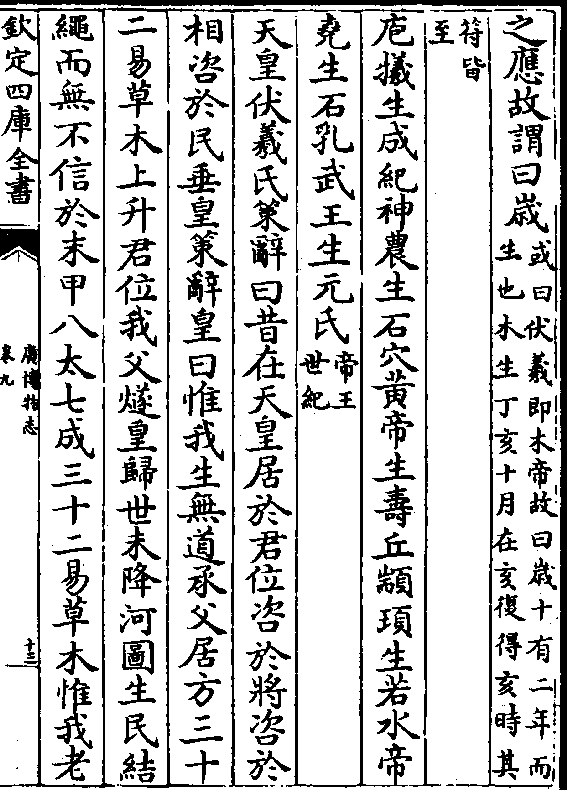 之應故謂曰歳或曰伏羲即木帝故曰歳十有二年而
生也木生丁亥十月在亥復得亥時其
符皆
至
庖犧生成紀神農生石穴黄帝生壽丘顓頊生若水帝
堯生石乳武王生元氏帝王
世紀
天皇伏羲氏策辭曰昔在天皇居於君位咨於將咨於
相咨於民垂皇策辭皇曰惟我生無道承父居方三十
二易草木上升君位我父燧皇歸世未降河圖生民結
繩而無不信於末甲八太七成三十二易草木惟我老
欽定四庫全書
廣博物志
卷九
十三